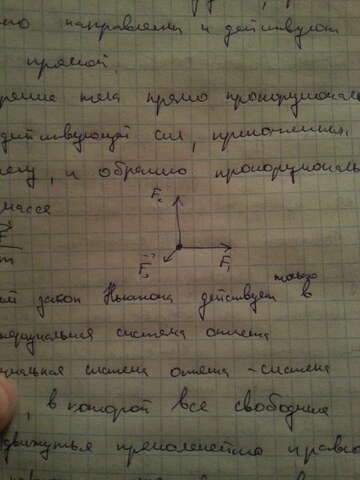 но направлены и действуют
прямой.
рение тела прямо пропорциональ
действующей сил, приложенных
телу, и обратно пропорциональ
массе
F₂
F
m
F₃ F₁
только
закон Ньютона действует в
система отсчета
циальная система отсчета - система
, в которой все свободные
движутся прямолинейно равно